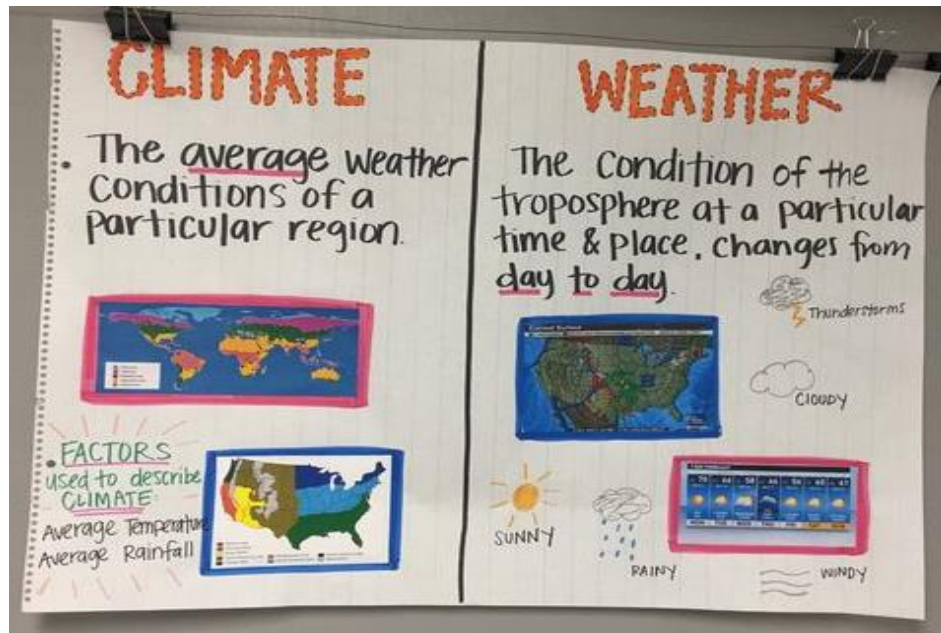 CLIMATE
The average weather
Conditions of a
particular region.
FACTORS
used to describe
CLIMATE:
Average Temperature
Average Rainfall
WEATHER
The Condition of the
troposphere at a particular
time & place, changes from
day to day.
Thunderstorms
CLOUDY
SUNNY
RAINY
WINDY
Current Surface
70 66 58 66 56 60 67
MON TUE WED THU FRI SAT SUN